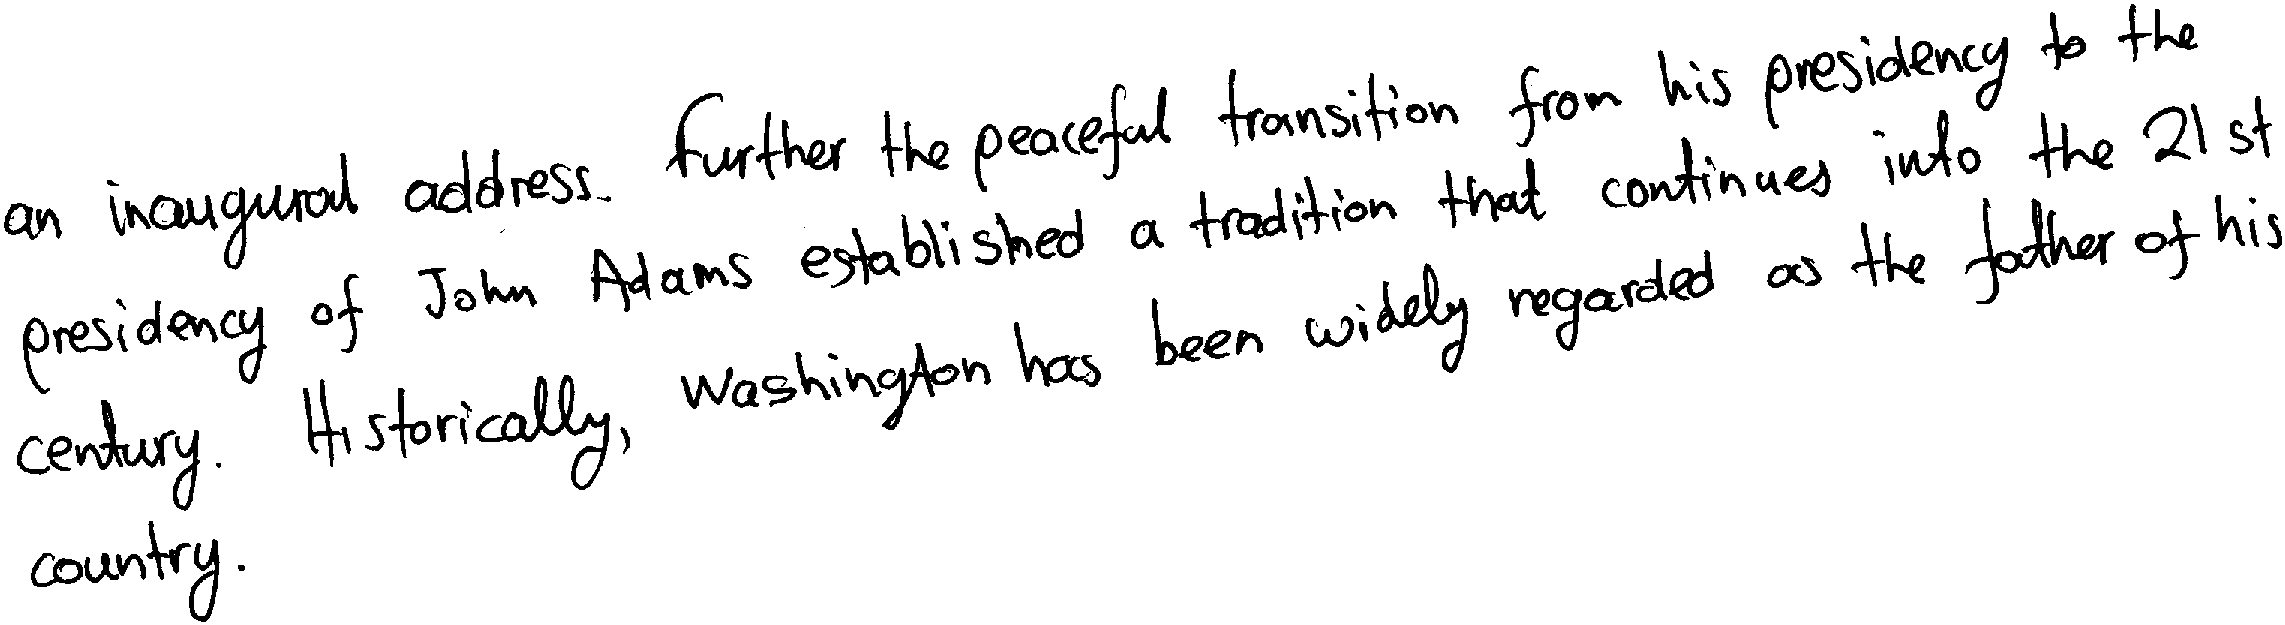 an inaugural address. Further the peaceful transition from his presidency to the
presidency of John Adams established a tradition that continues into the 21st
century. Historically, Washington has been widely regarded as the father of his
country.